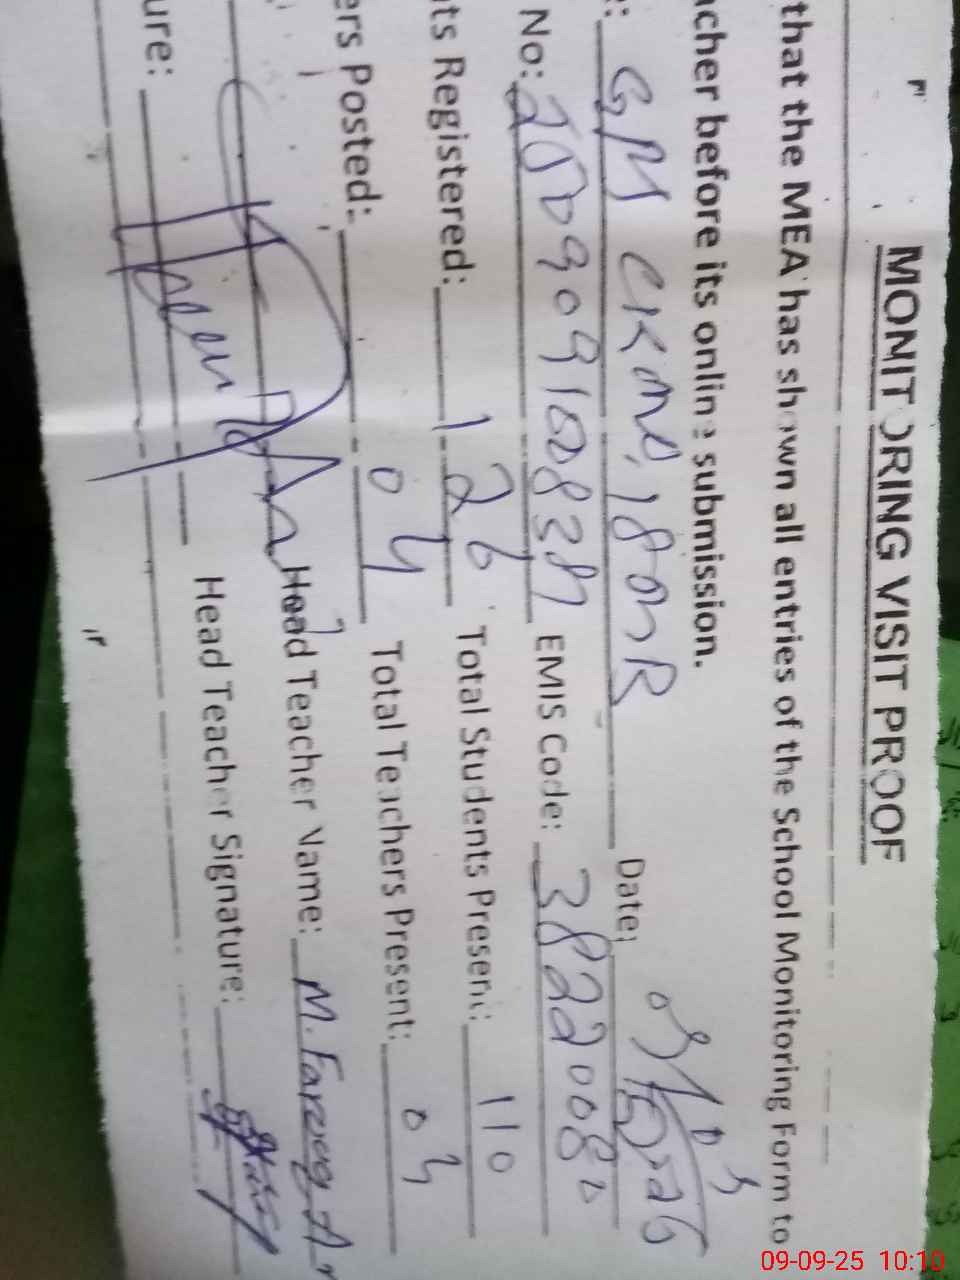 MONITORING VISIT PROOF
that the MEA has shown all entries of the School Monitoring Form to
cher before its online submission.
Date:
No: EMIS Code: 38220082
ts Registered: 126 Total Students Present: 110
ers Posted: 04 Total Teachers Present: 04
Head Teacher Name: M. Farooq
ure: Head Teacher Signature:
09-09-25 10:10